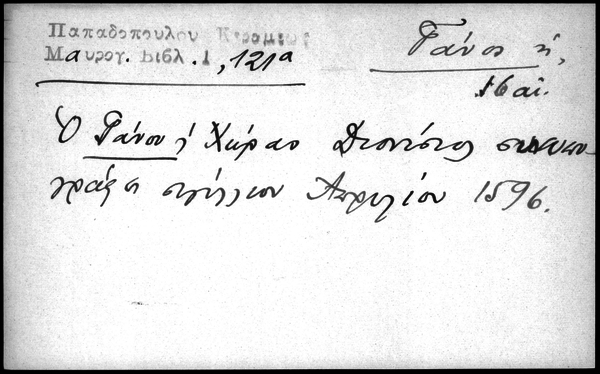 Παπαδοπουλου Κεραμεως
Μαυρογ. Βιβλ. 1, 121α
Γάνος ἡ,
16 αἰ.
Ὁ Γάνου κ Χώρας Διονύσιος συνυπο-
γράφει σιγίλλιον Ἀπριλίου 1596.